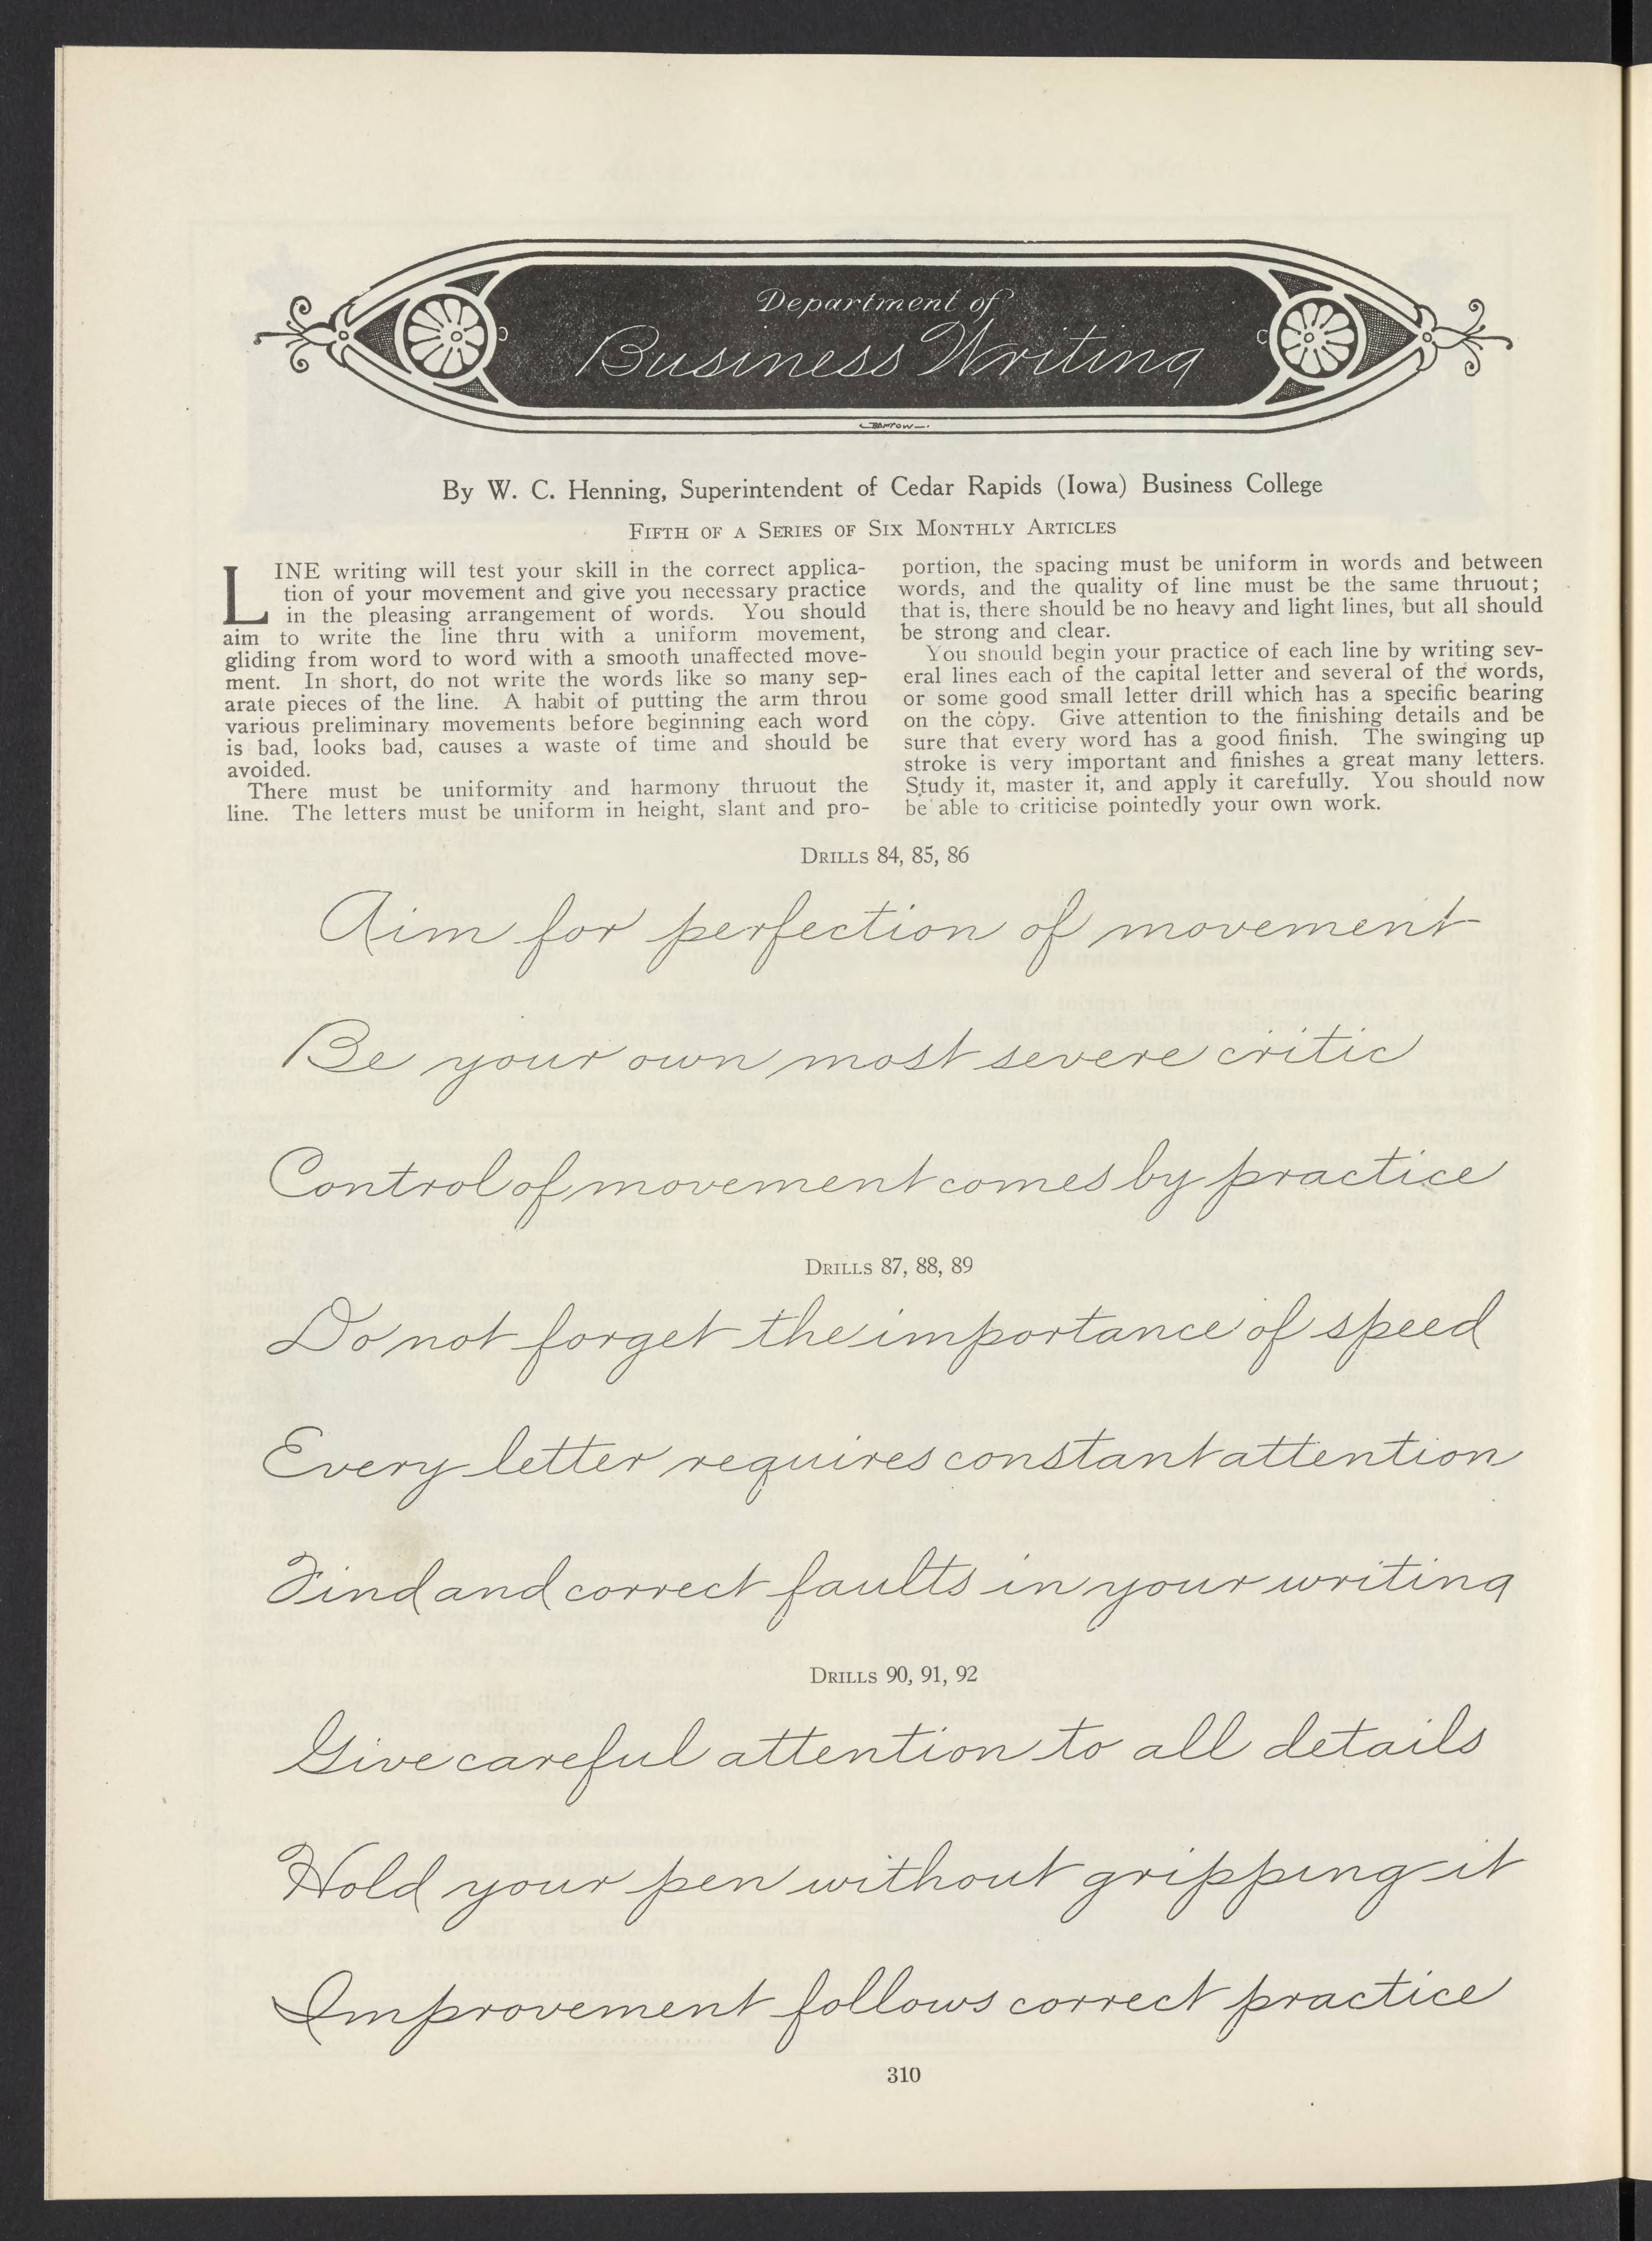 Department of
Business Writing
By W. C. Henning, Superintendent of Cedar Rapids (Iowa) Business College
FIFTH OF A SERIES OF SIX MONTHLY ARTICLES
LINE writing will test your skill in the correct applica-
tion of your movement and give you necessary practice
in the pleasing arrangement of words. You should
aim to write the line thru with a uniform movement,
gliding from word to word with a smooth unaffected move-
ment. In short, do not write the words like so many sep-
arate pieces of the line. A habit of putting the arm throu
various preliminary movements before beginning each word
is bad, looks bad, causes a waste of time and should be
avoided.
There must be uniformity and harmony thruout the
line. The letters must be uniform in height, slant and pro-
portion, the spacing must be uniform in words and between
words, and the quality of line must be the same thruout;
that is, there should be no heavy and light lines, but all should
be strong and clear.
You should begin your practice of each line by writing sev-
eral lines each of the capital letter and several of the words,
or some good small letter drill which has a specific bearing
on the copy. Give attention to the finishing details and be
sure that every word has a good finish. The swinging up
stroke is very important and finishes a great many letters.
Study it, master it, and apply it carefully. You should now
be able to criticise pointedly your own work.
DRILLS 84, 85, 86
Aim for perfection of movement
Be your own most severe critic
Control of movement comes by practice
DRILLS 87, 88, 89
Do not forget the importance of speed
Every letter requires constant attention
Find and correct faults in your writing
DRILLS 90, 91, 92
Give careful attention to all details
Hold your pen without gripping it
Improvement follows correct practice
310